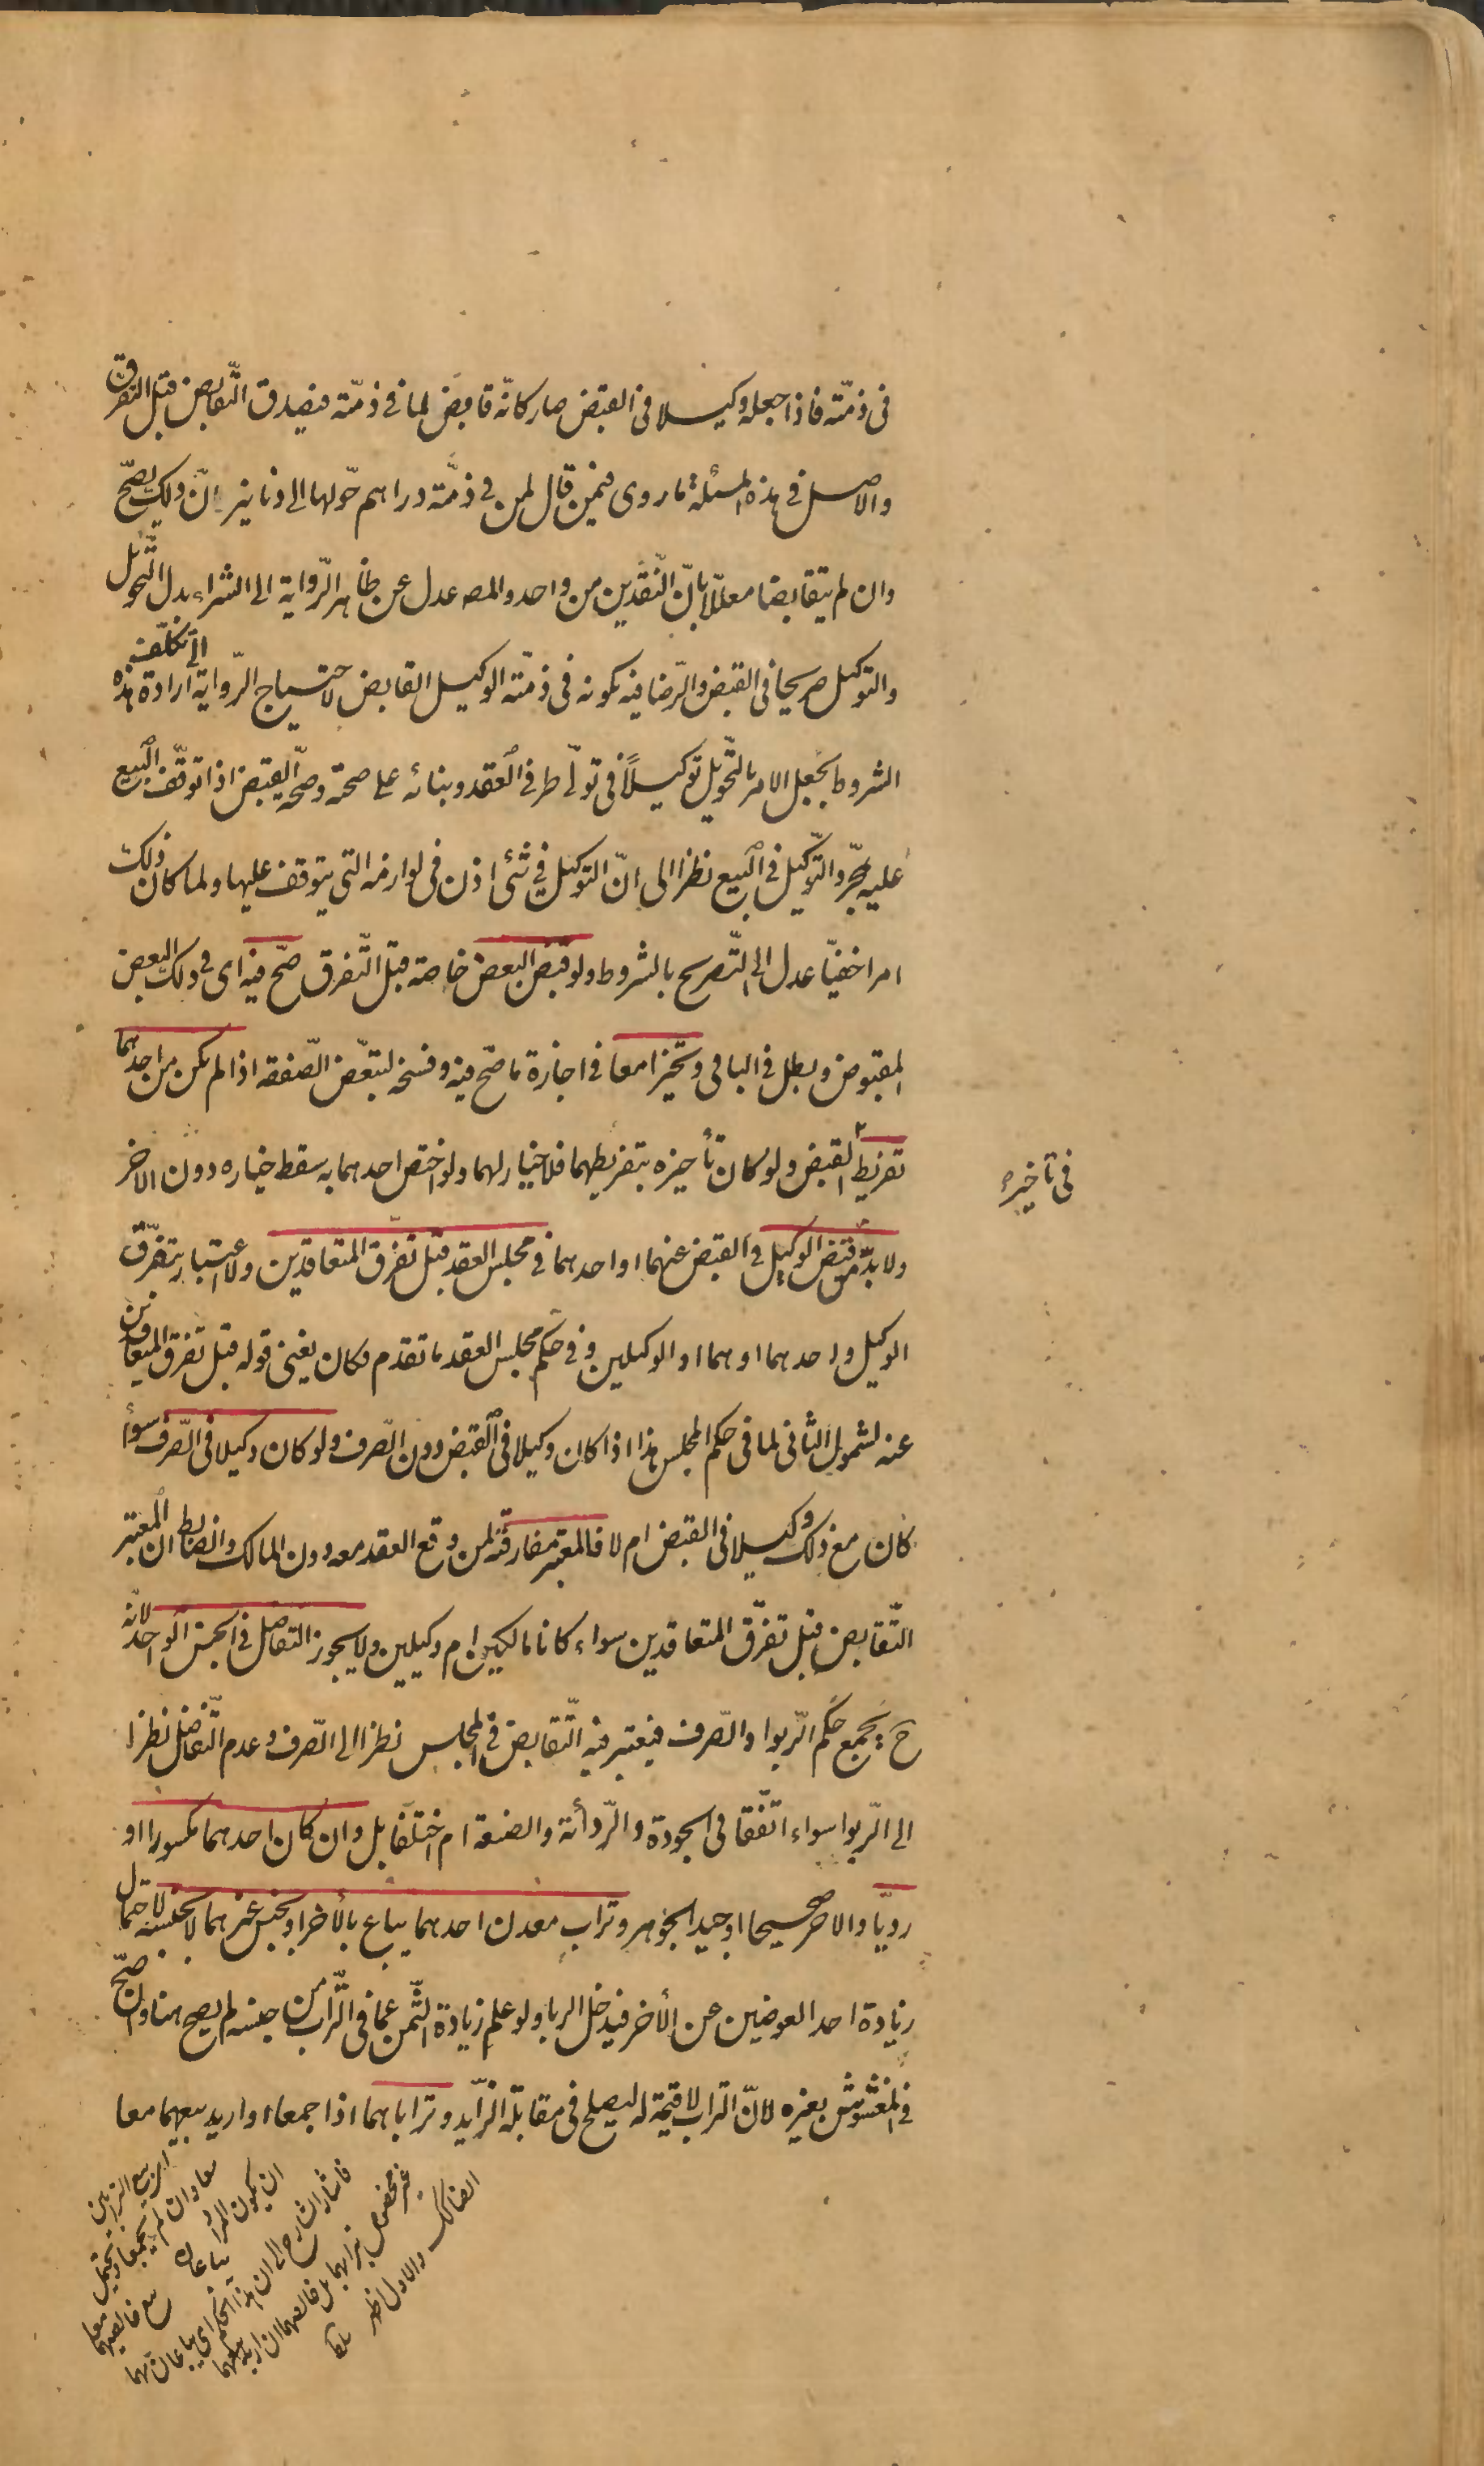 فى ذمّته فاذا جعله وكيلا فى القبض صار كانّه قابض لما فى ذمّته فيصدق التّقابض قبل التفرق
والاصل فى هذه المسئلة ما روى فيمن قال لمن فى ذمّته دراهم حّولها الى دنانير انّ ذلك يصّح
وان لم يتقابضا معلّلا بانّ النّقدين من واحد والمصـ عدل عن ظاهر الرّواية الى الشراء بدل التّحويل
والتوكيل صريحا فى القبض والرّضا فيه بكونه فى ذمّته الوكيل القابض لاحتياج الرّواية الى تكلّف ارادة هذه
الشروط بجعل الامر بالتّحويل توكيلاً فى تولّى طرفى العقد وبنائه على صحته وصحّة القبض اذا توقّف البيع
عليه بمجّرد التّوكيل فى البيع نظرا الى انّ التوكيل فى شئ اذن فى لوازمه التى يتوقف عليها ولما كان ذلك
امرا خفيّا عدل الى التّصريح بالشروط ولو قبض البعض خاصة قبل التّفرق صّح فيه اى فى ذلك البعض
المقبوض وبطل فى الباقى وتخّيرا معا فى اجازة ما صّح فيه وفسخه لتبعّض الصّفقه اذا لم يكن من احدهما
تفريط القبض ولو كان تأخيره بتفريطهما فلا خيار لهما ولو اختص احدهما به سقط خياره دون الاخر
فى تاخيره
ولا بدّ من قبض الوكيل فى القبض عنهما او احدهما فى مجلس العقد قبل تفّرق المتعاقدين ولا اعتبار بتفرّق
الوكيل واحدهما او هما او الوكيلين وفى حكم مجلس العقد ما تقدم فكان يغنى قوله قبل تفرق المتعاقدين
عنه لشمول الثانى لما فى حكم المجلس هذا اذا كان وكيلا فى القبض دون الصّرف ولو كان وكيلا فى الصّرف سوأ
كان مع ذلك وكيلا فى القبض ام لا فالمعتبر مفارقته لمن وقع العقد معه دون المالك والضابط ان المعتبر
التّقابض قبل تفرّق المتعاقدين سواء كانا مالكين ام وكيلين ولا يجوز التفاضل فى الجنس الواحد لانّه
ح يجمع حكم الرّبوا والصّرف فيعتبر فيه التّقابض فى المجلس نظرا الى الصّرف وعدم التّفاضل نظرا
الى الرّبوا سواء اتّفقا فى الجودة والرّدأئة والصنعة ام اختلفا بل وان كان احدهما مكسورا او
رديّا والاخر صحيحا او جيد الجوهر وتراب معدن احدهما يباع بالأخر او بجنس غيرهما لا بجنسه لاحتمال
زيادة احد العوضين عن الأخر فيدخل الربا ولو علم زيادة الثّمن عما فى التّراب من جنسه لم يصح هنا وان صّح
فى المغشوش بغيره لانّ التراب لا قيمة له ليصلح فى مقابلة الزّايد وتراباهما اذا جمعا او اريد بيعهما معا
اريد بيع الترابين
معا وان لم يجمعا ويحتمل
ان يكون المراد يباعان مع خالصهما معا
فاشار الشارح الى ان هذا الحكم اى يباعان بهما
غير مخصوص بترابهما بل خالصهما ان اريد بيعهما
كذلك والاول اظهر